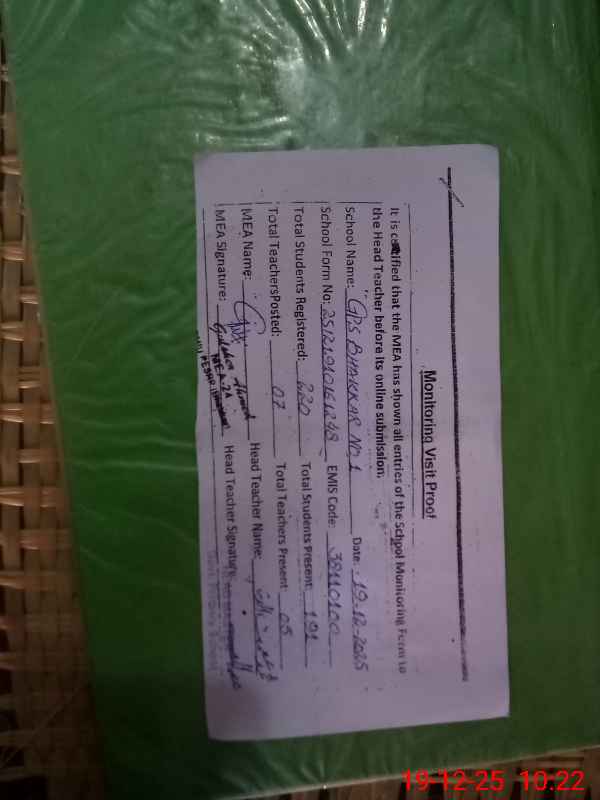 Monitoring Visit Proof
It is certified that the MEA has shown all entries of the School Monitoring Form to
the Head Teacher before its online submission.
School Name: GPS BHAKKAR NO,1 Date: 19-12-2025
School Form No: EMIS Code: 38110100
Total Students Registered: 220 Total Students Present: 191
Total TeachersPosted: 07 Total Teachers Present: 05
MEA Name: Head Teacher Name:
MEA Signature: Ahmed Head Teacher Signature:
MEA-2A
19-12-25 10:22